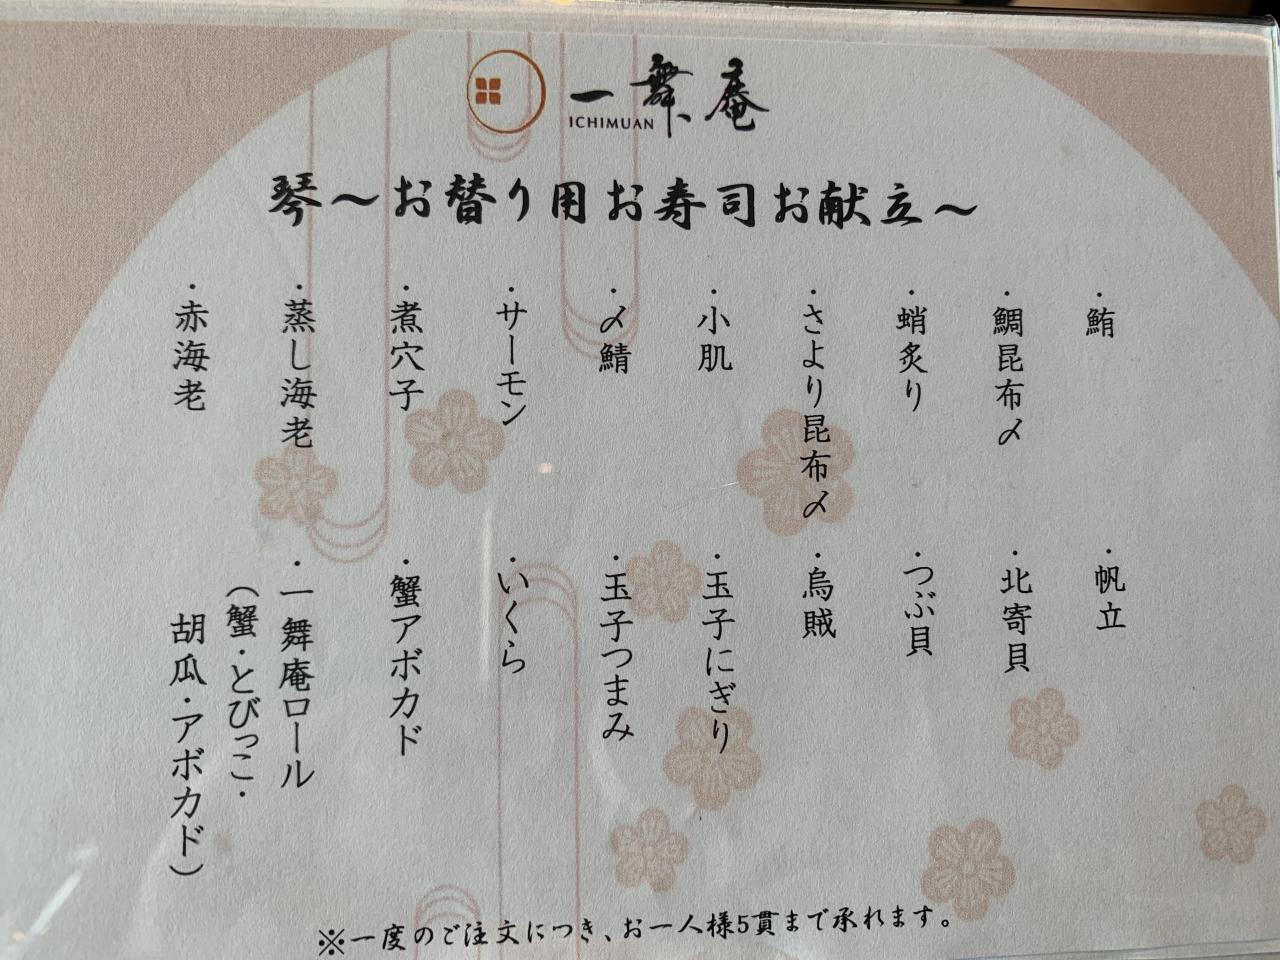 一舞庵
ICHIMUAN
琴～お替り用お寿司お献立～
・鮪
・鯛昆布〆
・蛸炙り
・さより昆布〆
・小肌
・〆鯖
・サーモン
・煮穴子
・蒸し海老
・赤海老
・帆立
・北寄貝
・つぶ貝
・烏賊
・玉子にぎり
・玉子つまみ
・いくら
・蟹アボカド
・一舞庵ロール
（蟹・とびっこ・
胡瓜・アボカド）
※一度のご注文につき、お一人様5貫まで承れます。